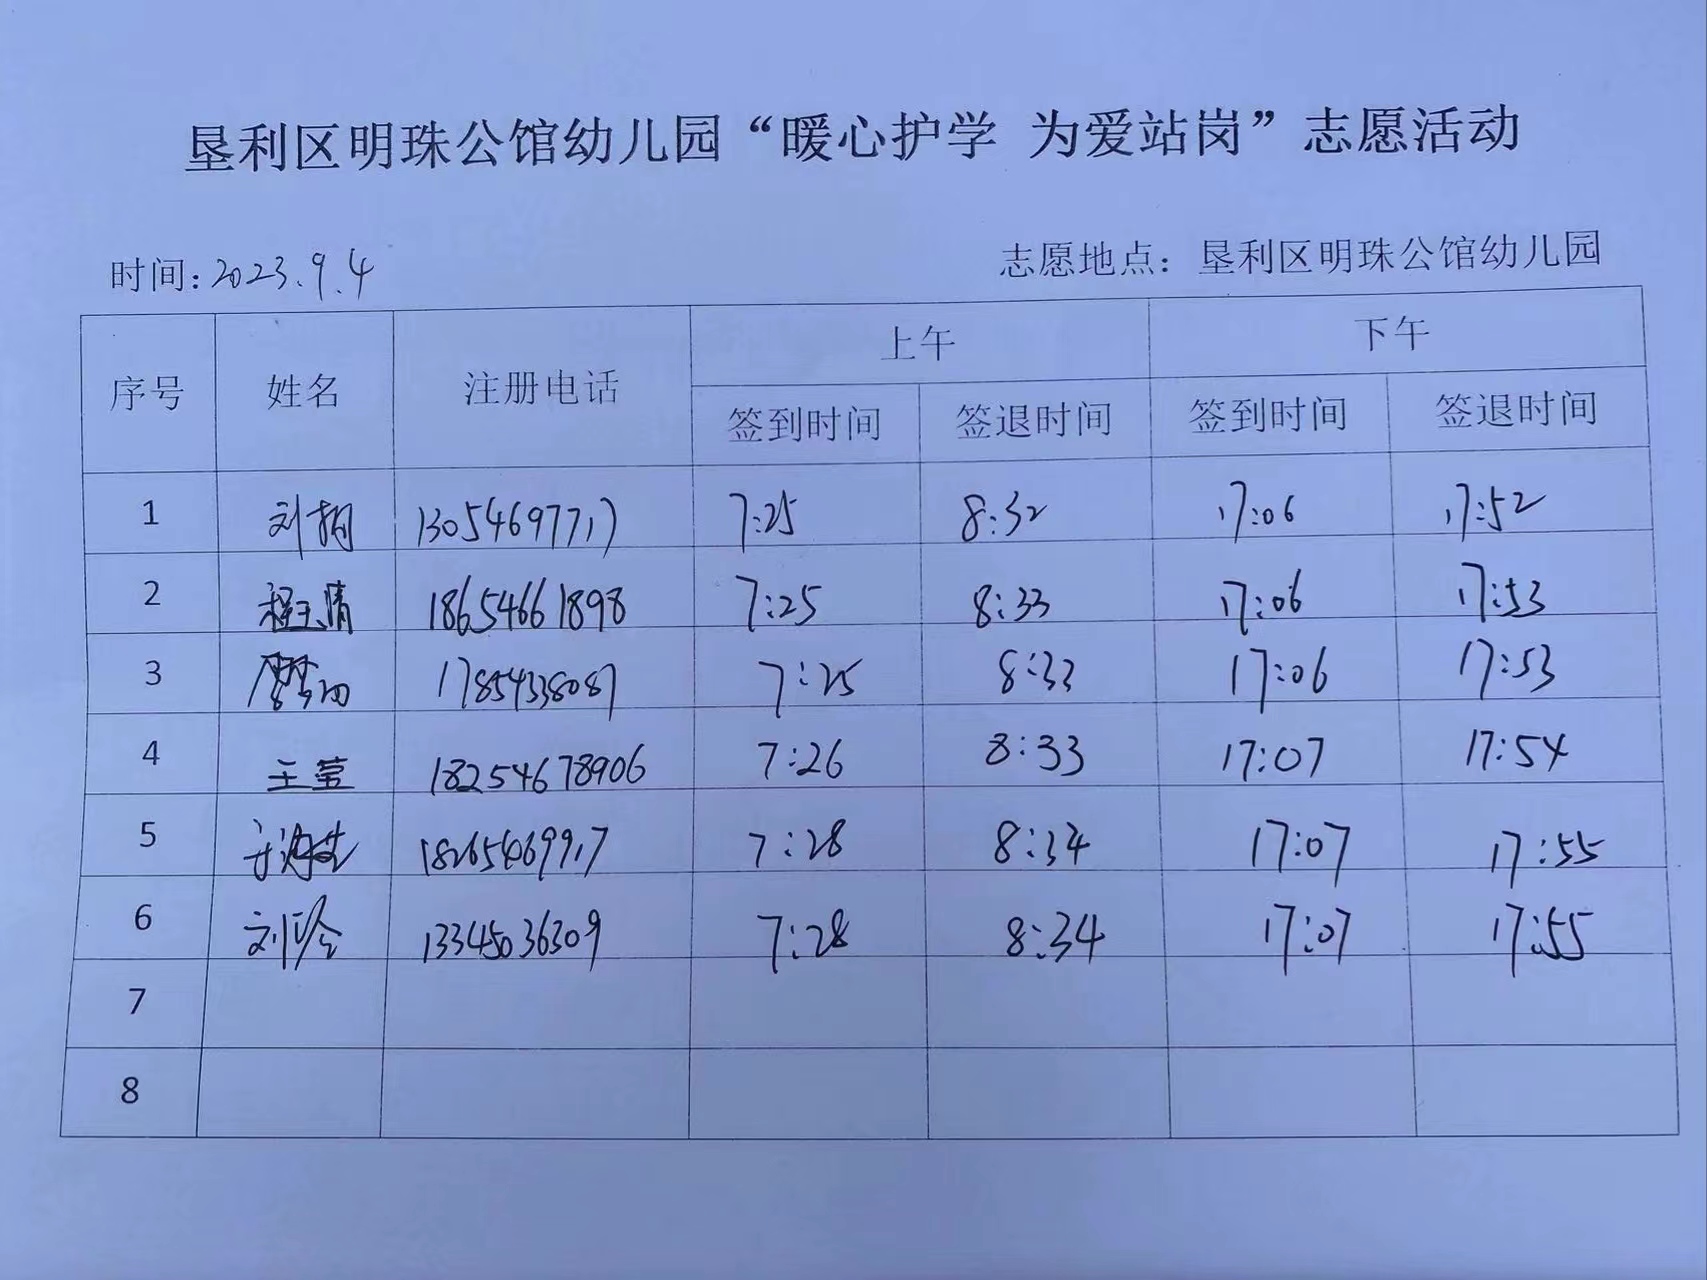 垦利区明珠公馆幼儿园“暖心护学 为爱站岗”志愿活动
时间: 2023.9.4 志愿地点：垦利区明珠公馆幼儿园
序号 姓名 注册电话 上午 下午
签到时间 签退时间 签到时间 签退时间
1 刘 13054697717 7:25 8:32 17:06 17:52
2 程玉清 18654661898 7:25 8:33 17:06 17:53
3 17854338087 7:25 8:33 17:06 17:53
4 王莹 18254678906 7:26 8:33 17:07 17:54
5 18265469917 7:28 8:34 17:07 17:55
6 刘玲 13345036309 7:28 8:34 17:07 17:55
7
8